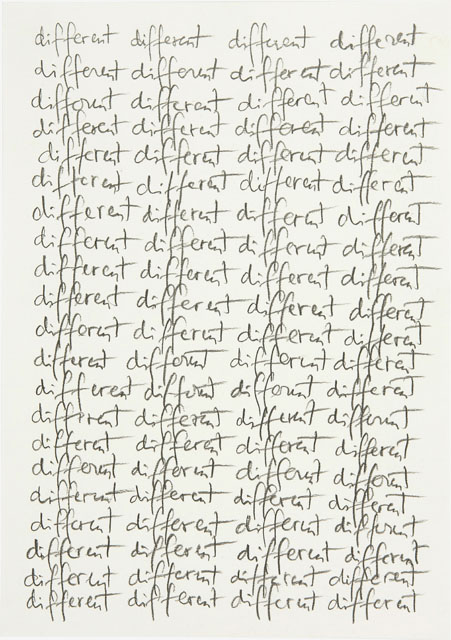 different different different different
different different different different
different different different different
different different different different
different different different different
different different different different
different different different different
different different different different
different different different different
different different different different
different different different different
different different different different
different different different different
different different different different
different different different different
different different different different
different different different different
different different different different
different different different different
different different different different
different different different different